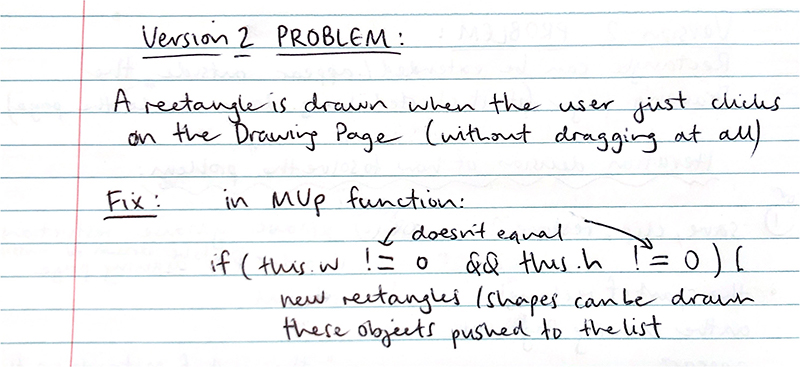 Version 2 PROBLEM:
A rectangle is drawn when the user just clicks
on the Drawing Page (without dragging at all)
Fix: in MUp function:
doesn't equal
if (this.w != 0 && this.h != 0) {
new rectangles/shapes can be drawn
these objects pushed to the list